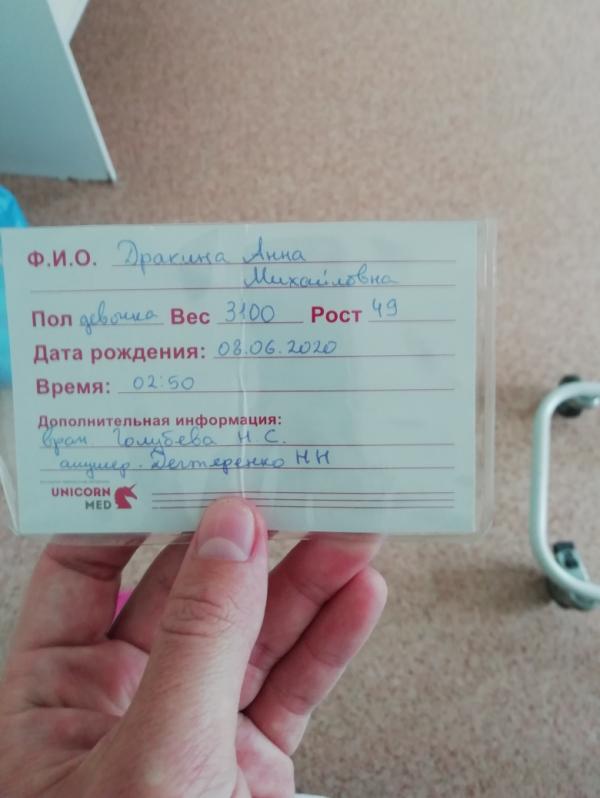 Ф.И.О. Дракина Анна
Михайловна
Пол девочка Вес 3100 Рост 49
Дата рождения: 08.06.2020
Время: 02:50
Дополнительная информация:
врач Голубева Н. С.
акушер. Дегтяренко Н Н
UNICORN
MED